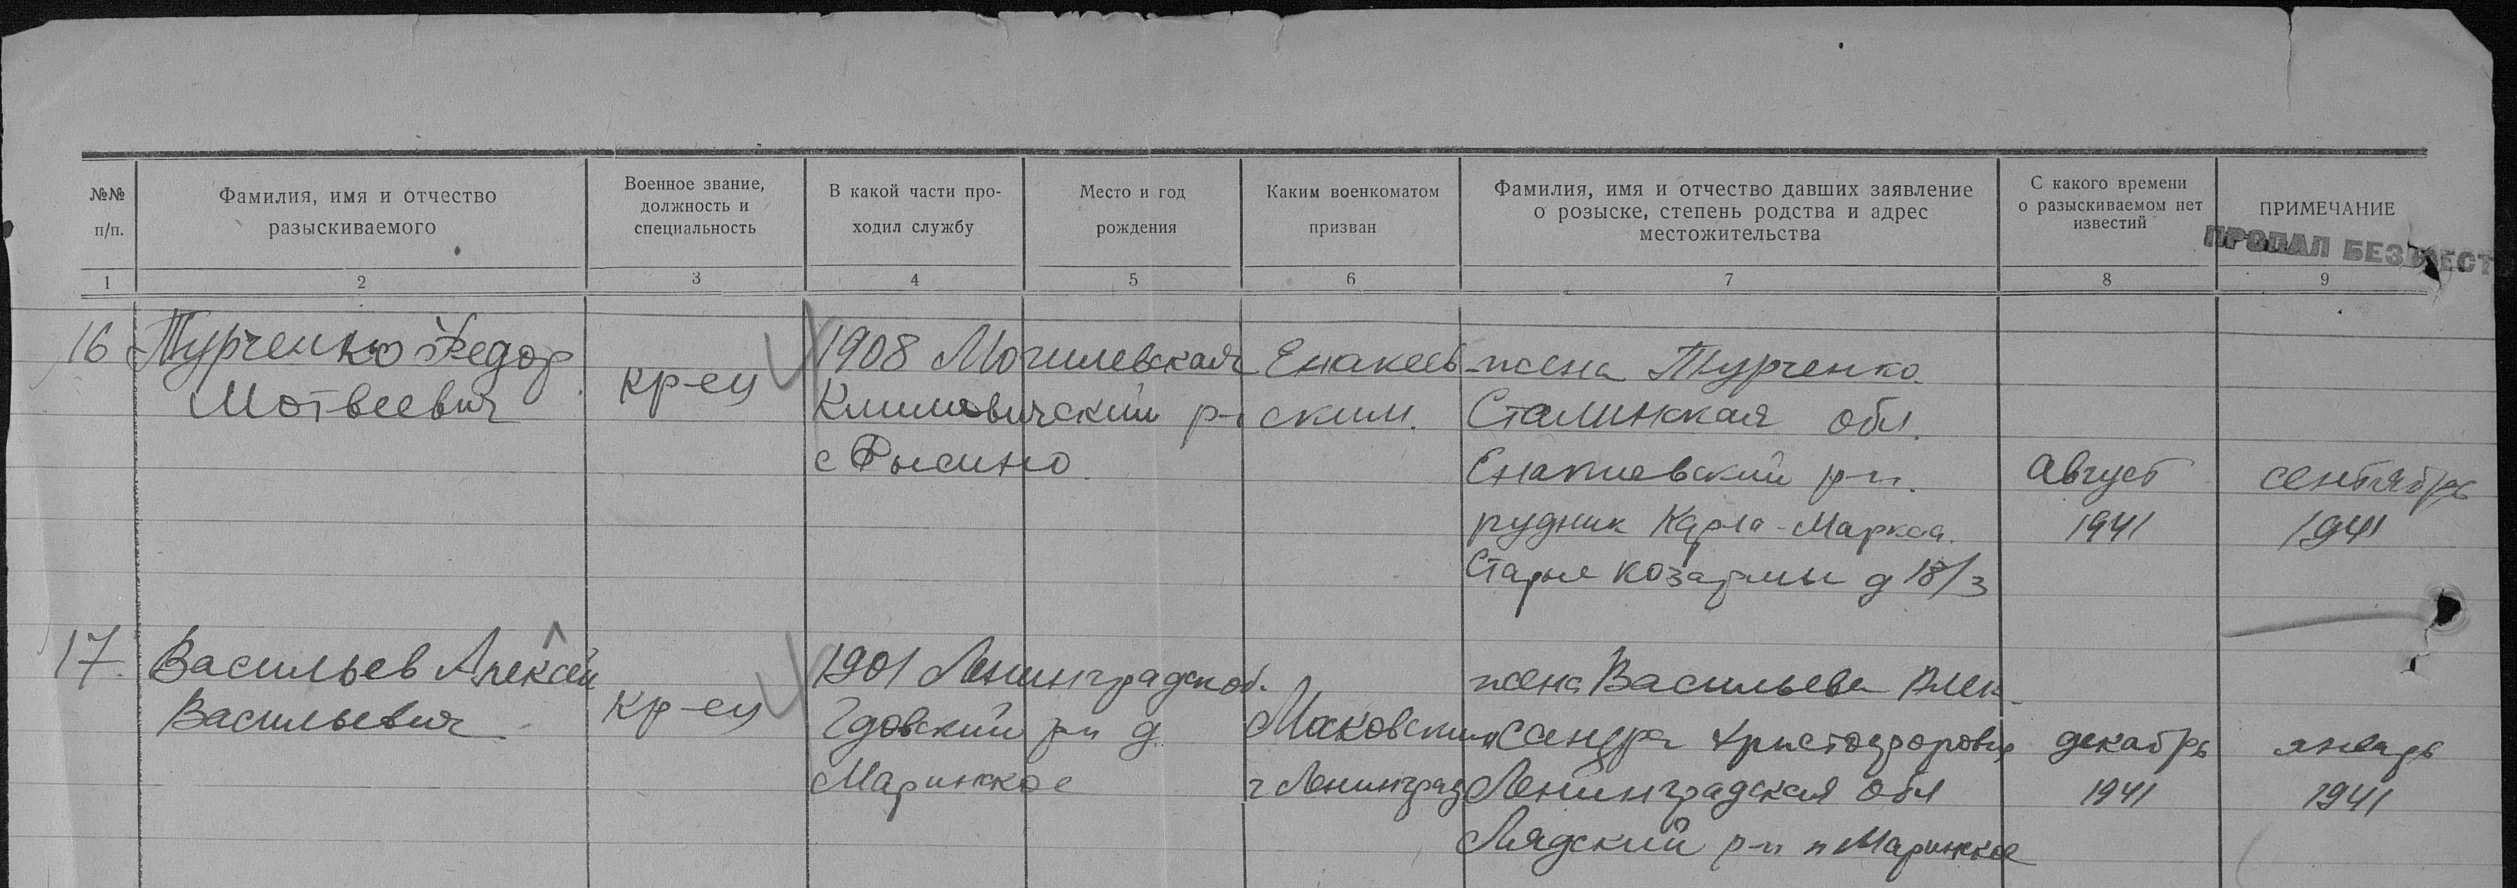 №№ п/п.
Фамилия, имя и отчество разыскиваемого
Военное звание, должность и специальность
В какой части проходил службу
Место и год рождения
Каким военкоматом призван
Фамилия, имя и отчество давших заявление о розыске, степень родства и адрес местожительства
С какого времени о разыскиваемом нет известий
ПРИМЕЧАНИЕ
ПРОПАЛ БЕЗ ВЕСТ
1 2 3 4 5 6 7 8 9
16 Турченко Федор
Мотвеевич
кр-ец
1908 Могилевская
Климовичский р-н
с Фысино
Енакеев-
ским.
жена Турченко
Сталинская обл.
Енакиевский р-н.
рудник Карла-Маркса.
Старые козармы д 18/3
август
1941
сентябрь
1941
17. Васильев Алексей
Васильевич
кр-ец
1901 Ленинградск об.
Гдовский р-н д.
Маринское
Московским
г Ленинград
жена Васильева Алек-
сандра Христофоровна
Ленинградская обл
Лядский р-н п Маринское
декабрь
1941
январь
1941